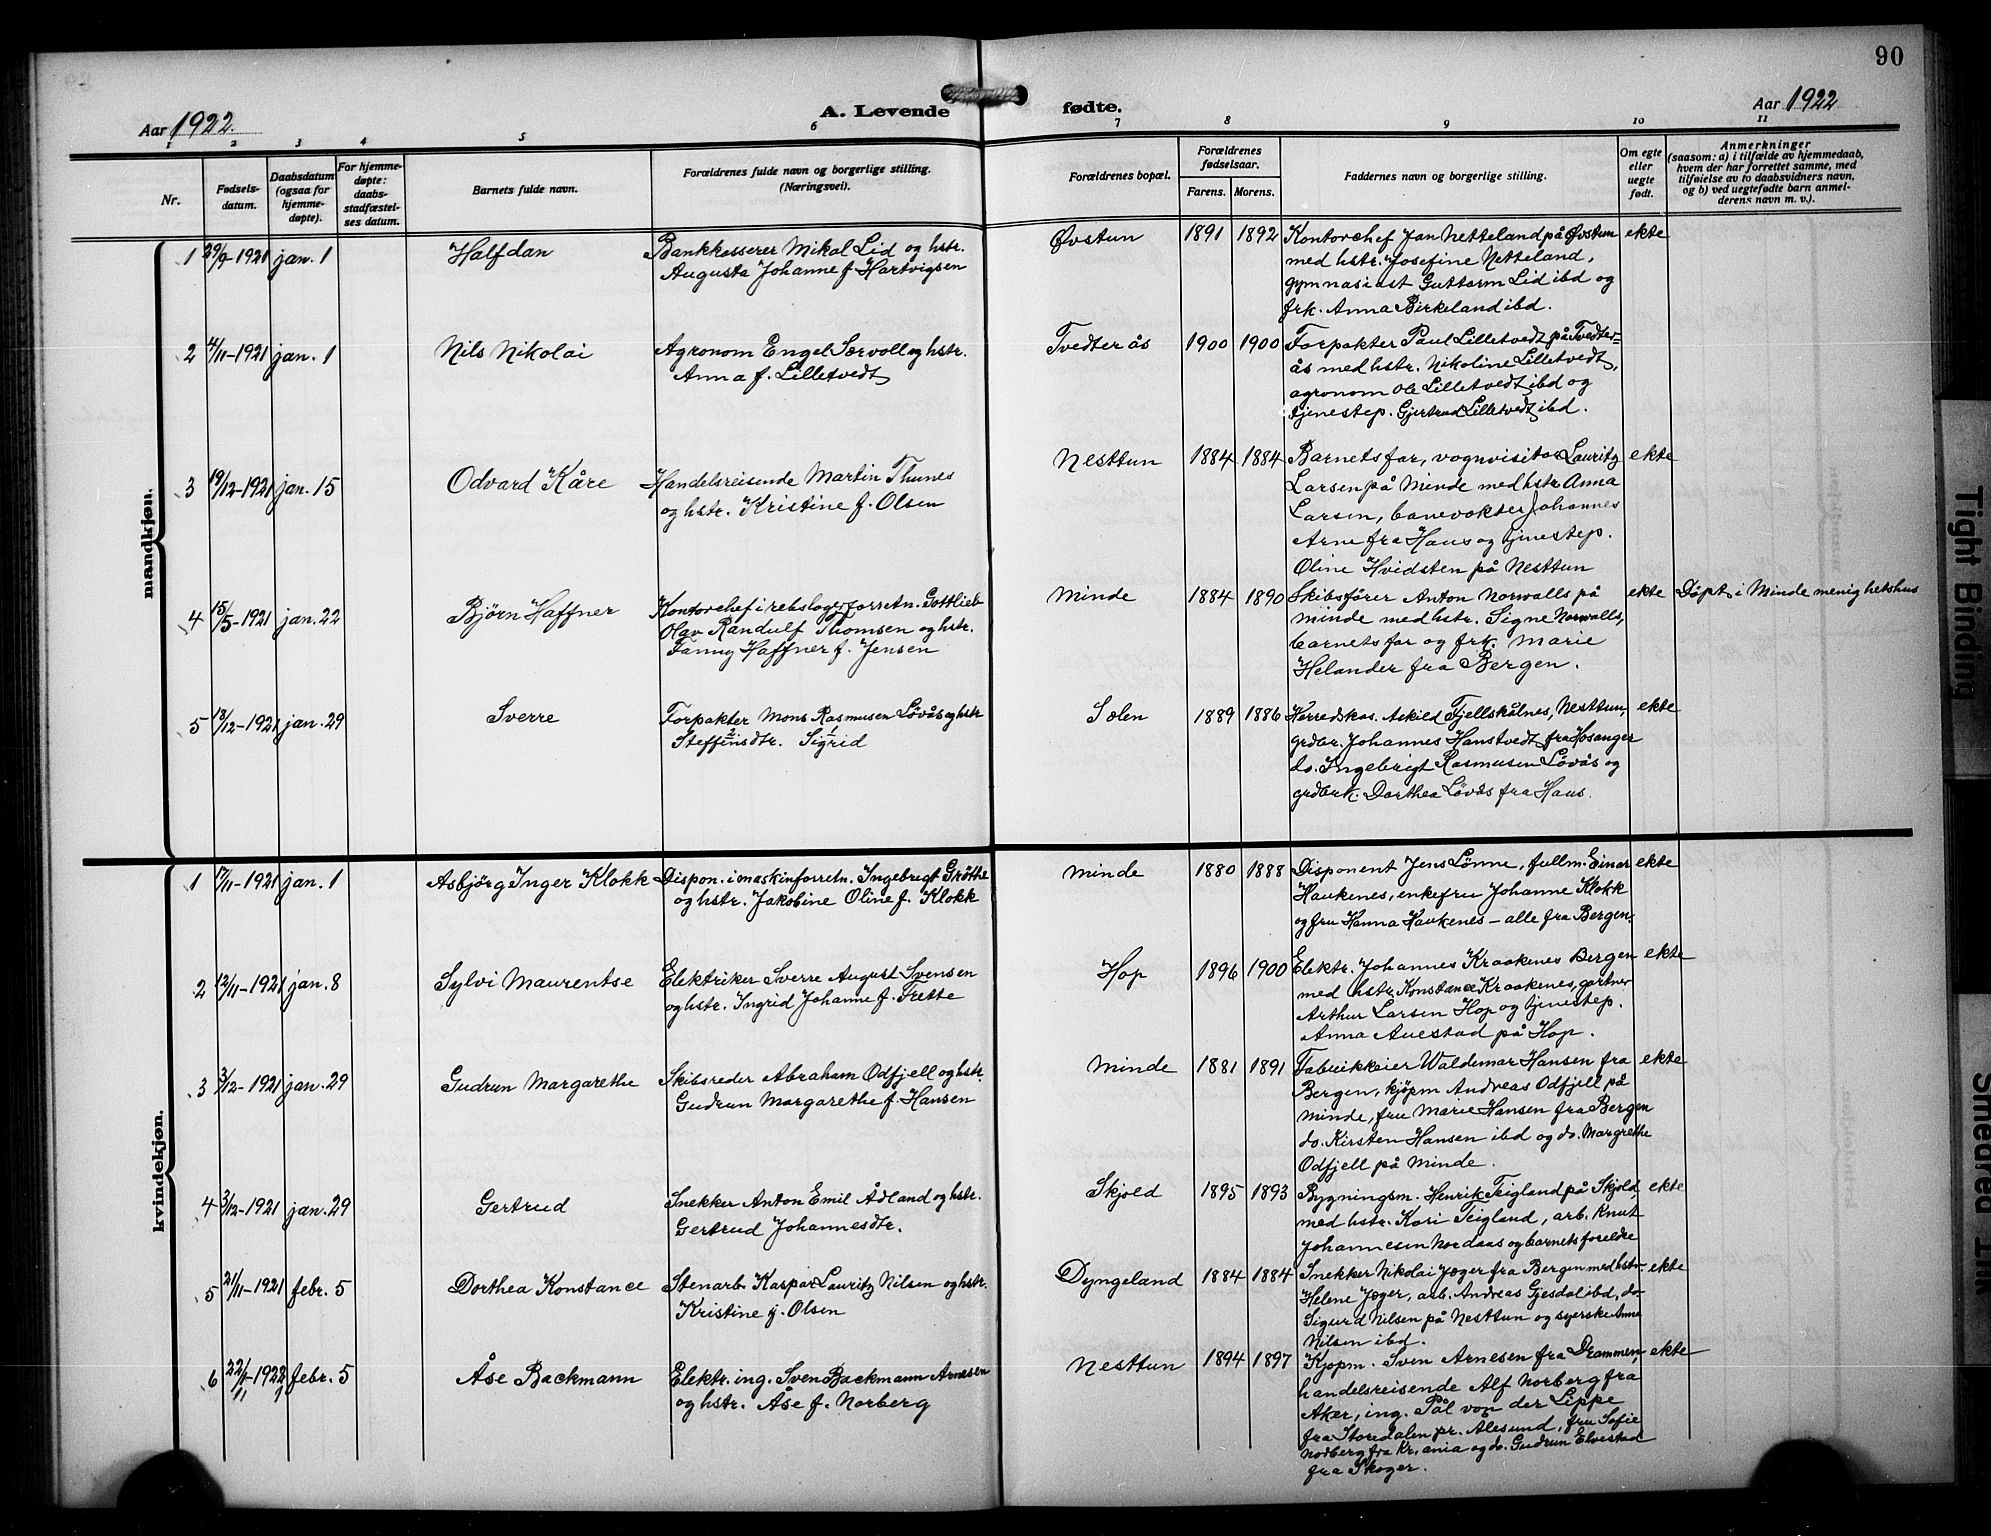 90
Aar 1922. A. Levende fødte. Aar 1922
1 2 3 4 5 6 7 8 9 10 11
Nr.
Fødsels-
datum.
Daabsdatum
(ogsaa for
hjemme-
døpte).
For hjemme-
døpte:
daabs-
stadfæstel-
ses datum.
Barnets fulde navn.
Forældrenes fulde navn og borgerlige stilling.
(Næringsvei).
Forældrenes bopæl.
Forældrenes
fødselsaar.
Farens. Morens.
Faddernes navn og borgerlige stilling.
Om egte
eller
uegte
født.
Anmerkninger
(saasom: a) i tilfælde av hjemmedaab,
hvem der har forrettet samme, med
tilføielse av to daabsvidners navn,
og b) ved uegtefødte barn anmel-
derens navn m. v.).
mandkjøn.
1 29/9-1921 jan. 1 Halfdan
Bankkasserer Mikal Lid og hstr.
Augusta Johanne f. Hartvigsen
Øvstun 1891 1892
Kontorchef Jan Netteland på Øvstun
med hstr. Josefine Netteland,
gymnasiast Guttorm Lid ibd og
frk. Anna Birkeland ibd.
ekte
2 4/11-1921 jan. 1 Nils Nikolai
Agronom Engel Sørvoll og hstr.
Anna f. Lilletvedt
Tvedterås 1900 1900
Forpakter Paul Lilletvedt på Tvedter=
ås med hstr. Nikoline Lilletvedt,
agronom Ole Lilletvedt ibd og
tjenestep. Gjertrud Lilletvedt ibd.
3 19/12-1921 jan. 15 Odvard Kåre
Handelsreisende Martin Thunes
og hstr. Kristine f. Olsen
Nesttun 1884 1884
Barnets far, vognvisitør Lauritz
Larsen på Minde med hstr Anna
Larsen, banevokter Johannes
Arne fra Haus og tjenestep.
Oline Hvidsten på Nesttun
ekte
4 15/5-1921 jan. 22 Bjørn Haffner
Kontorchef i rebslagerforretn. Gottlieb
Olav Randulf Thomsen og hstr.
Fanny Haffner f. Jensen
Minde 1884 1890
Skibsfører Anton Norwalls på
Minde med hstr. Signe Norwalls,
barnets far og frk. Marie
Helander fra Bergen.
ekte Døpt i Minde menighetshus
5 18/12-1921 jan. 29 Sverre
Forpakter Mons Rasmusen Lövås og hstr
Steffensdtr. Sigrid
2 1
Sølen 1889 1886
Herredskas. Askild Fjellskålnes, Nesttun,
grdbr. Johannes Hanstvedt fra Hosanger
do. Ingebrigt Rasmusen Lövås og
grdbrk. Dorthea Lövås fra Haus.
ekte
kvindekjøn.
1 17/11-1921 jan. 1 Asbjörg Inger Klokk
Dispon. i maskinforretn. Ingebrigt Grötte
og hstr. Jakobine Oline f. Klokk
Minde 1880 1888
Disponent Jens Lönne, fullm. Einar
Haukenes, enkefru Johanne Klokk
og fru Hanna Haukenes – alle fra Bergen.
ekte
2 12/11-1921 jan. 8 Sylvi Maurentse
Elektriker Sverre August Svensen
og hstr. Ingrid Johanne f. Frette
Hop 1896 1900
Elektr. Johannes Kraakenes Bergen
med hstr. Konstance Kraakenes, gartner
Arthur Larsen Hop og tjenestep.
Anna Auestad på Hop.
ekte
3 3/12-1921 jan. 29 Gudrun Margarethe
Skibsreder Abraham Odfjell og hstr.
Gudrun Margarethe f. Hansen
Minde 1881 1891
Fabrikkeier Waldemar Hansen fra
Bergen, kjøpm Andreas Odfjell på
Minde, fru Marie Hansen fra Bergen
do. Kirsten Hansen ibd og do. Margrethe
Odfjell på Minde.
ekte
4 3/12-1921 jan. 29 Gertrud
Snekker Anton Emil Ådland og hstr.
Gertrud Johannesdtr.
Skjold 1895 1893
Bygningsm. Henrik Teigland på Skjold,
med hstr. Kari Teigland, arb. Knut
Johannesen Nordaas og barnets foreldre
ekte
5 21/11-1921 febr. 5 Dorthea Konstance
Stenarb. Kaspar Lauritz Nilsen og hstr.
Kristine f. Olsen
Dyngeland 1884 1884
Snekker Nikolai Jæger fra Bergen med hstr
Helene Jæger, arb. Andreas Gjesdal ibd, do
Sigurd Nilsen på Nesttun og syerske Anna
Nilsen ibd.
ekte
6 febr. 5 Åse Backmann
Elektr. ing. Sven Backmann Arnesen
og hstr. Åse f. Norberg
Nesttun 1894 1897
Kjøpm. Sven Arnesen fra Drammen,
handelsreisende Alf Norberg fra
Aker, ing. Pål von der Lippe
fra Storedalen pr. Ålesund, fru Sofie
Norberg fra Kr.ania og do. Gudrun Elvestad
fra Skoger.
ekte
Tight Binding
Smeared Ink